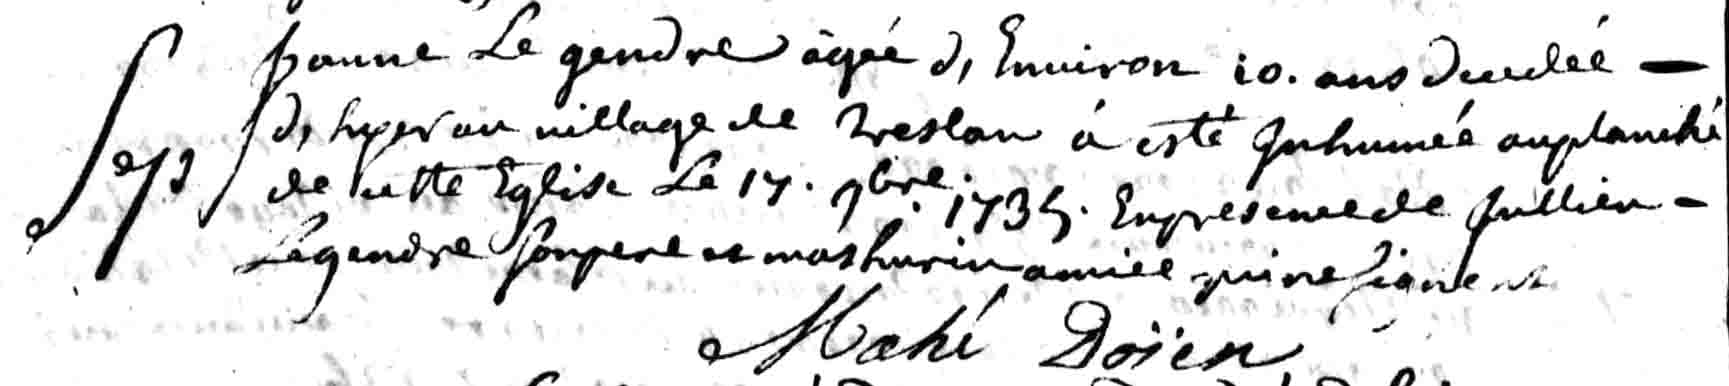 Janne Le gendre agée d, Environ 10. ans decedée —
Sep d, hyer au village de Treslan à esté Inhumée auplanché
de cette Eglise Le 17. 9bre. 1735. Enpresence de Jullien -
Legendre sonpere et mathurin amiee quine signent
Mahé Doïen